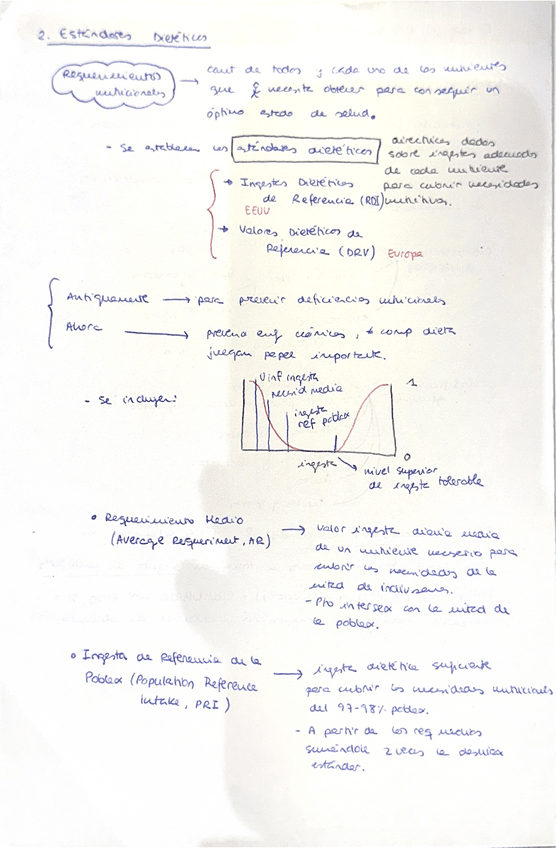 2. Estándares Dietéticos
Requerimientos nutricionales → cant de todos y cada uno de los nutrientes
que necesita obtener para conseguir un
óptimo estado de salud.
- Se establecen los estándares dietéticos
directrices dadas
sobre ingestas adecuadas
de cada nutriente
para cubrir necesidades
nutritivas.
→ Ingestas Dietéticas
de Referencia (RDI)
EEUU
→ Valores Dietéticos de
Referencia (DRV) Europa
Antiguamente → para prevenir deficiencias nutricionales
Ahora → previene enf crónicas, comp dieta
juegan papel importante.
- Se incluyen:
V inf ingesta
necesid media
ingesta
ref poblax
1
0
ingesta
nivel superior
de ingesta tolerable
• Requerimiento Medio → Valor ingesta diaria media
(Average Requeriment, AR) de un nutriente necesario para
cubrir las necesidades de la
mitad de individuos.
- Pto intersex con la mitad de
la poblax.
• Ingesta de Referencia de la → ingesta dietética suficiente
Poblax (Population Reference para cubrir las necesidades nutricionales
Intake, PRI) del 97-98% poblax.
- A partir de los req medios
sumándole 2 veces la desviax
estándar.